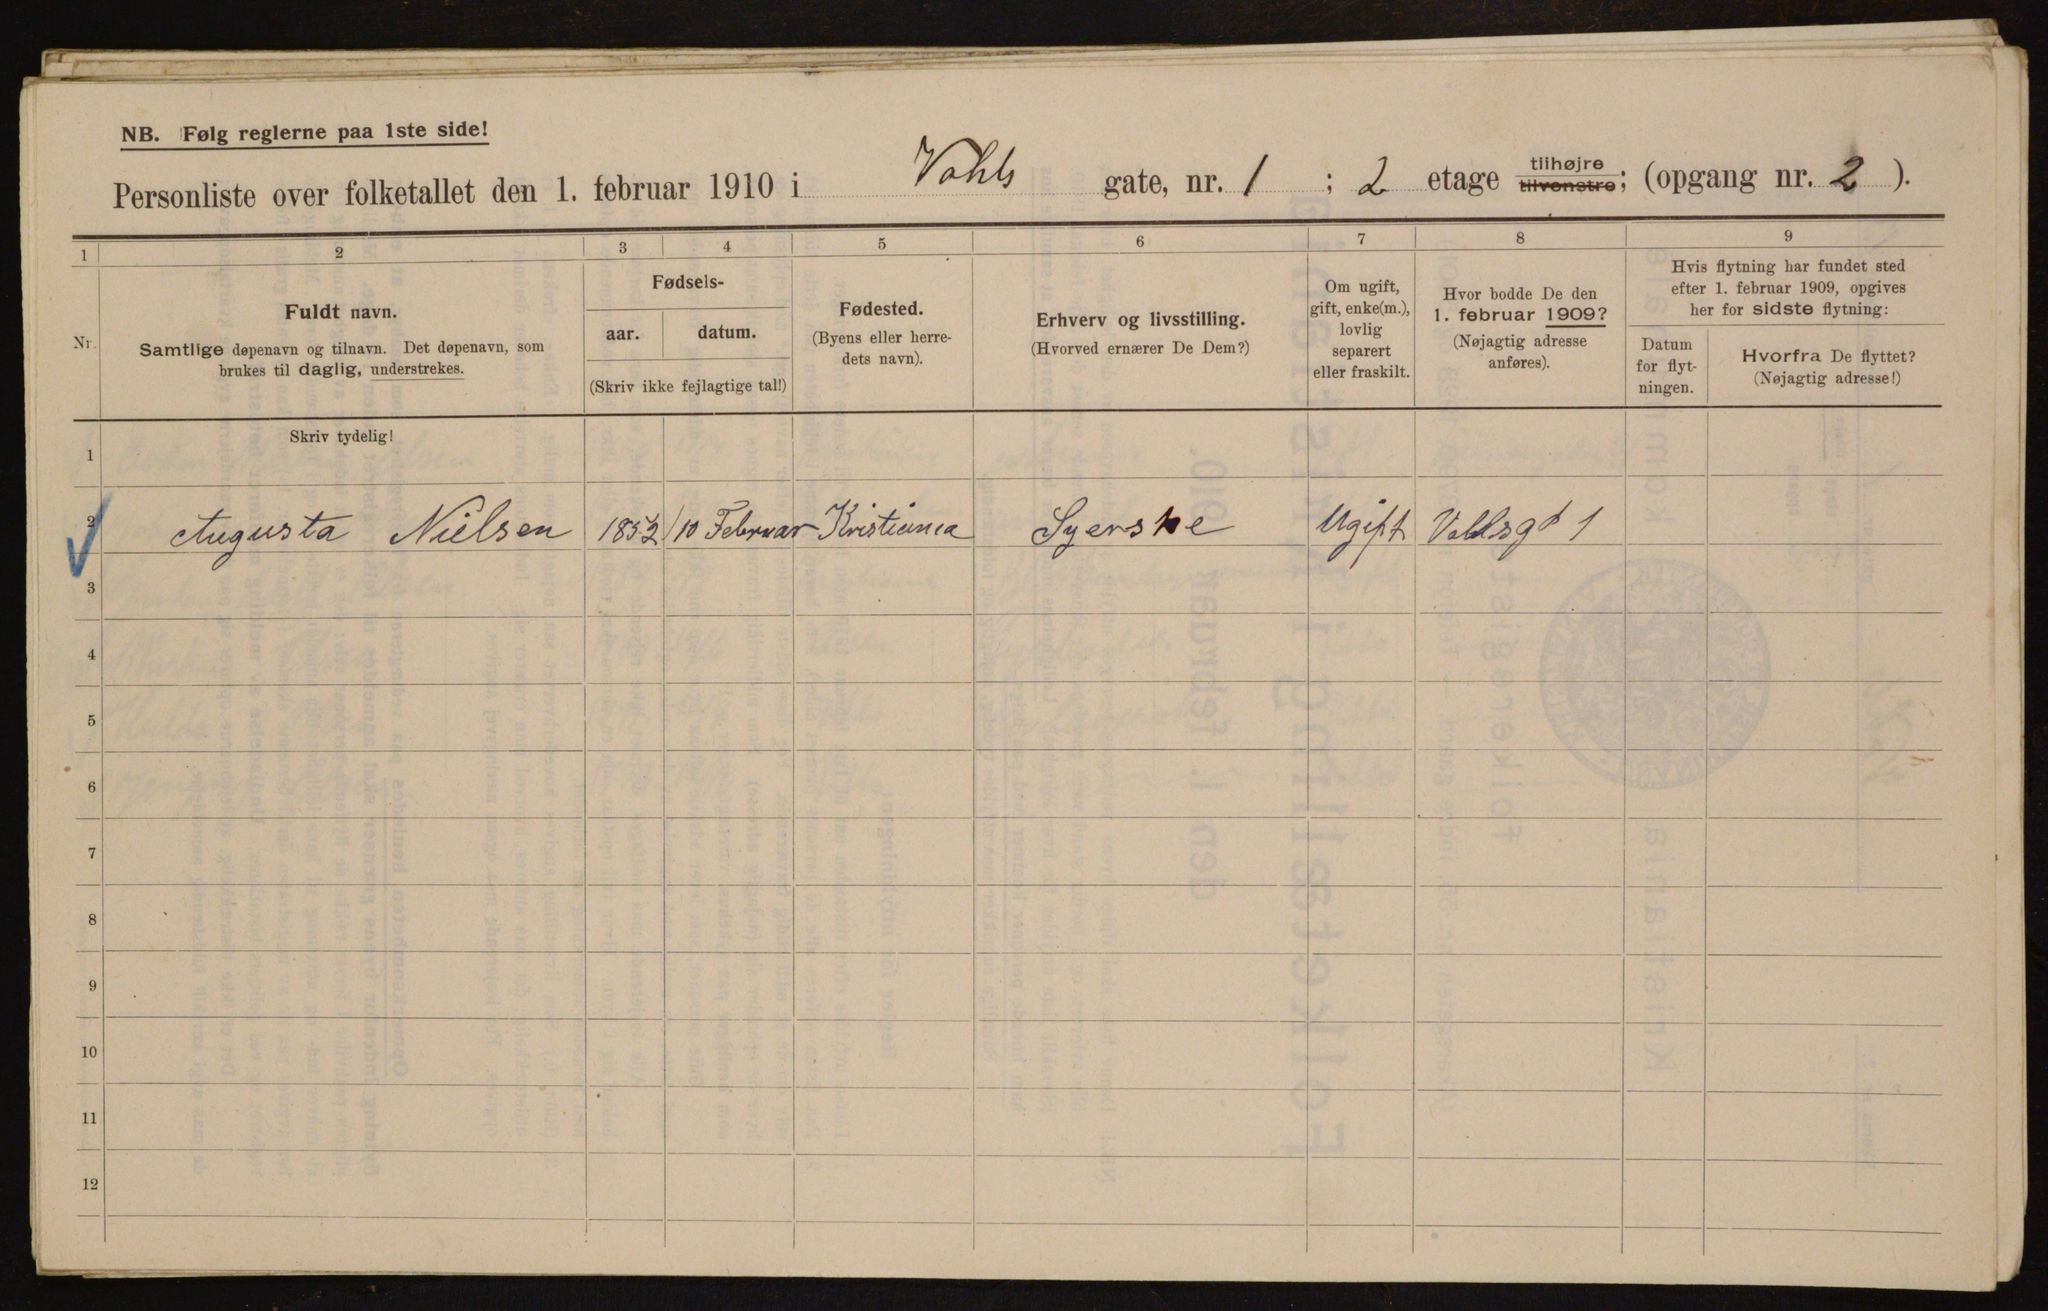 NB. Følg reglerne paa 1ste side!
Personliste over folketallet den 1. februar 1910 i Vahls gate, nr. 1 ; 2 etage tilhøjre tilvenstre; (opgang nr. 2 ).
1 2 3 4 5 6 7 8 9
Nr.
Fuldt navn.
Samtlige døpenavn og tilnavn. Det døpenavn, som
brukes til daglig, understrekes.
Fødsels-
aar. datum.
(Skriv ikke fejlagtige tal!)
Fødested.
(Byens eller herre-
dets navn).
Erhverv og livsstilling.
(Hvorved ernærer De Dem?)
Om ugift,
gift, enke(m.),
lovlig
separert
eller fraskilt.
Hvor bodde De den
1. februar 1909?
(Nøjagtig adresse
anføres).
Hvis flytning har fundet sted
efter 1. februar 1909, opgives
her for sidste flytning:
Datum
for flyt-
ningen.
Hvorfra De flyttet?
(Nøjagtig adresse!)
Skriv tydelig!
1
2 Augusta Nielsen 1852 10 Februar Kristiania Syerske Ugift Vahlsgd 1
3
4
5
6
7
8
9
10
11
12